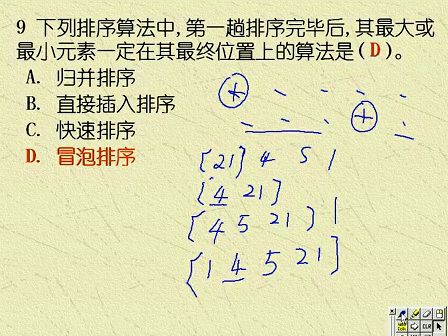 9 下列排序算法中,第一趟排序完毕后,其最大或
最小元素一定在其最终位置上的算法是(D)。
A. 归并排序
B. 直接插入排序
C. 快速排序
D. 冒泡排序
[21] 4 5 1
[4 21]
[4 5 21] 1
[1 4 5 21]